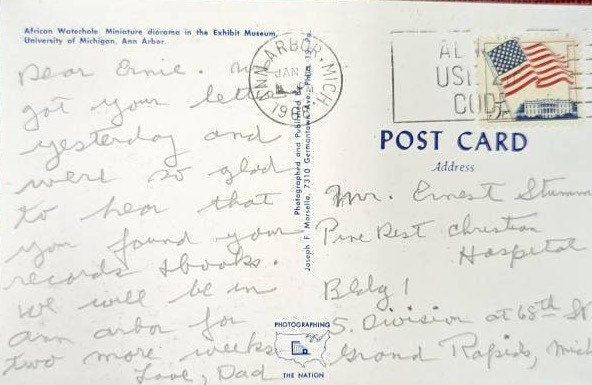 African Waterhole. Miniature diorama in the Exhibit Museum,
University of Michigan, Ann Arbor.
Dear Ernie. We
got your letter
yesterday and
were so glad
to hear that
you found your
records & books.
We will be in
Ann Arbor for
two more weeks
Love, Dad
Photographed and Published by
Joseph F. Morsello, 7310 Germantown Ave., Phila. 19, Pa.
PHOTOGRAPHING
THE NATION
ANN ARBOR, MICH
JAN
19
AL
USE
CODE
POST CARD
Address
Mr. Ernest
Pine Rest Christian
Hospital
Bldg 1
S. Division at 68th St
Grand Rapids, Mich